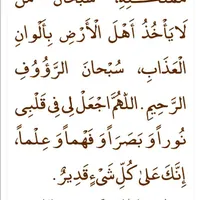 لَا يَأْخُذُ أَهْلَ الْأَرْضِ بِأَلْوَانِ
الْعَذَابِ، سُبْحَانَ الرَّؤُوفِ
الرَّحِيمِ. اللّٰهُمَّ اجْعَلْ لِی فِی قَلْبِی
نُوراً وَ بَصَراً وَ فَهْماً وَ عِلْماً،
إِنَّكَ عَلىٰ كُلِّ شَیْءٍ قَدِيرٌ.